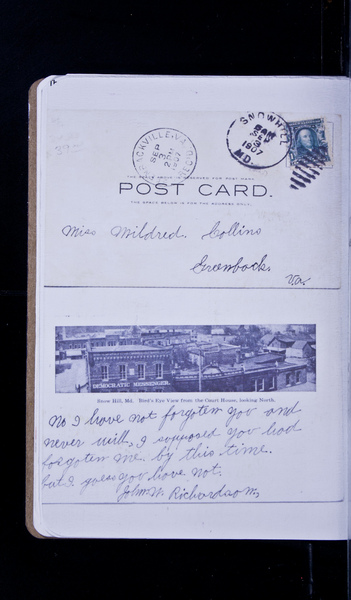 12
SNOWHILL
8 AM
SEP
3
1907
MD.
SEP
3
2 PM
1907
REC'D.
THE SPACE ABOVE IS RESERVED FOR POST MARK.
POST CARD.
THE SPACE BELOW IS FOR THE ADDRESS ONLY.
Miss Mildred. Collins
Greenback.
Va.
DEMOCRATIC MESSENGER.
Snow Hill, Md. Bird's Eye View from the Court House, looking North.
No I have not forgoten you and
never will, I supposed you had
forgoten me. by this time.
but I guess you have not.
John W. Richardson